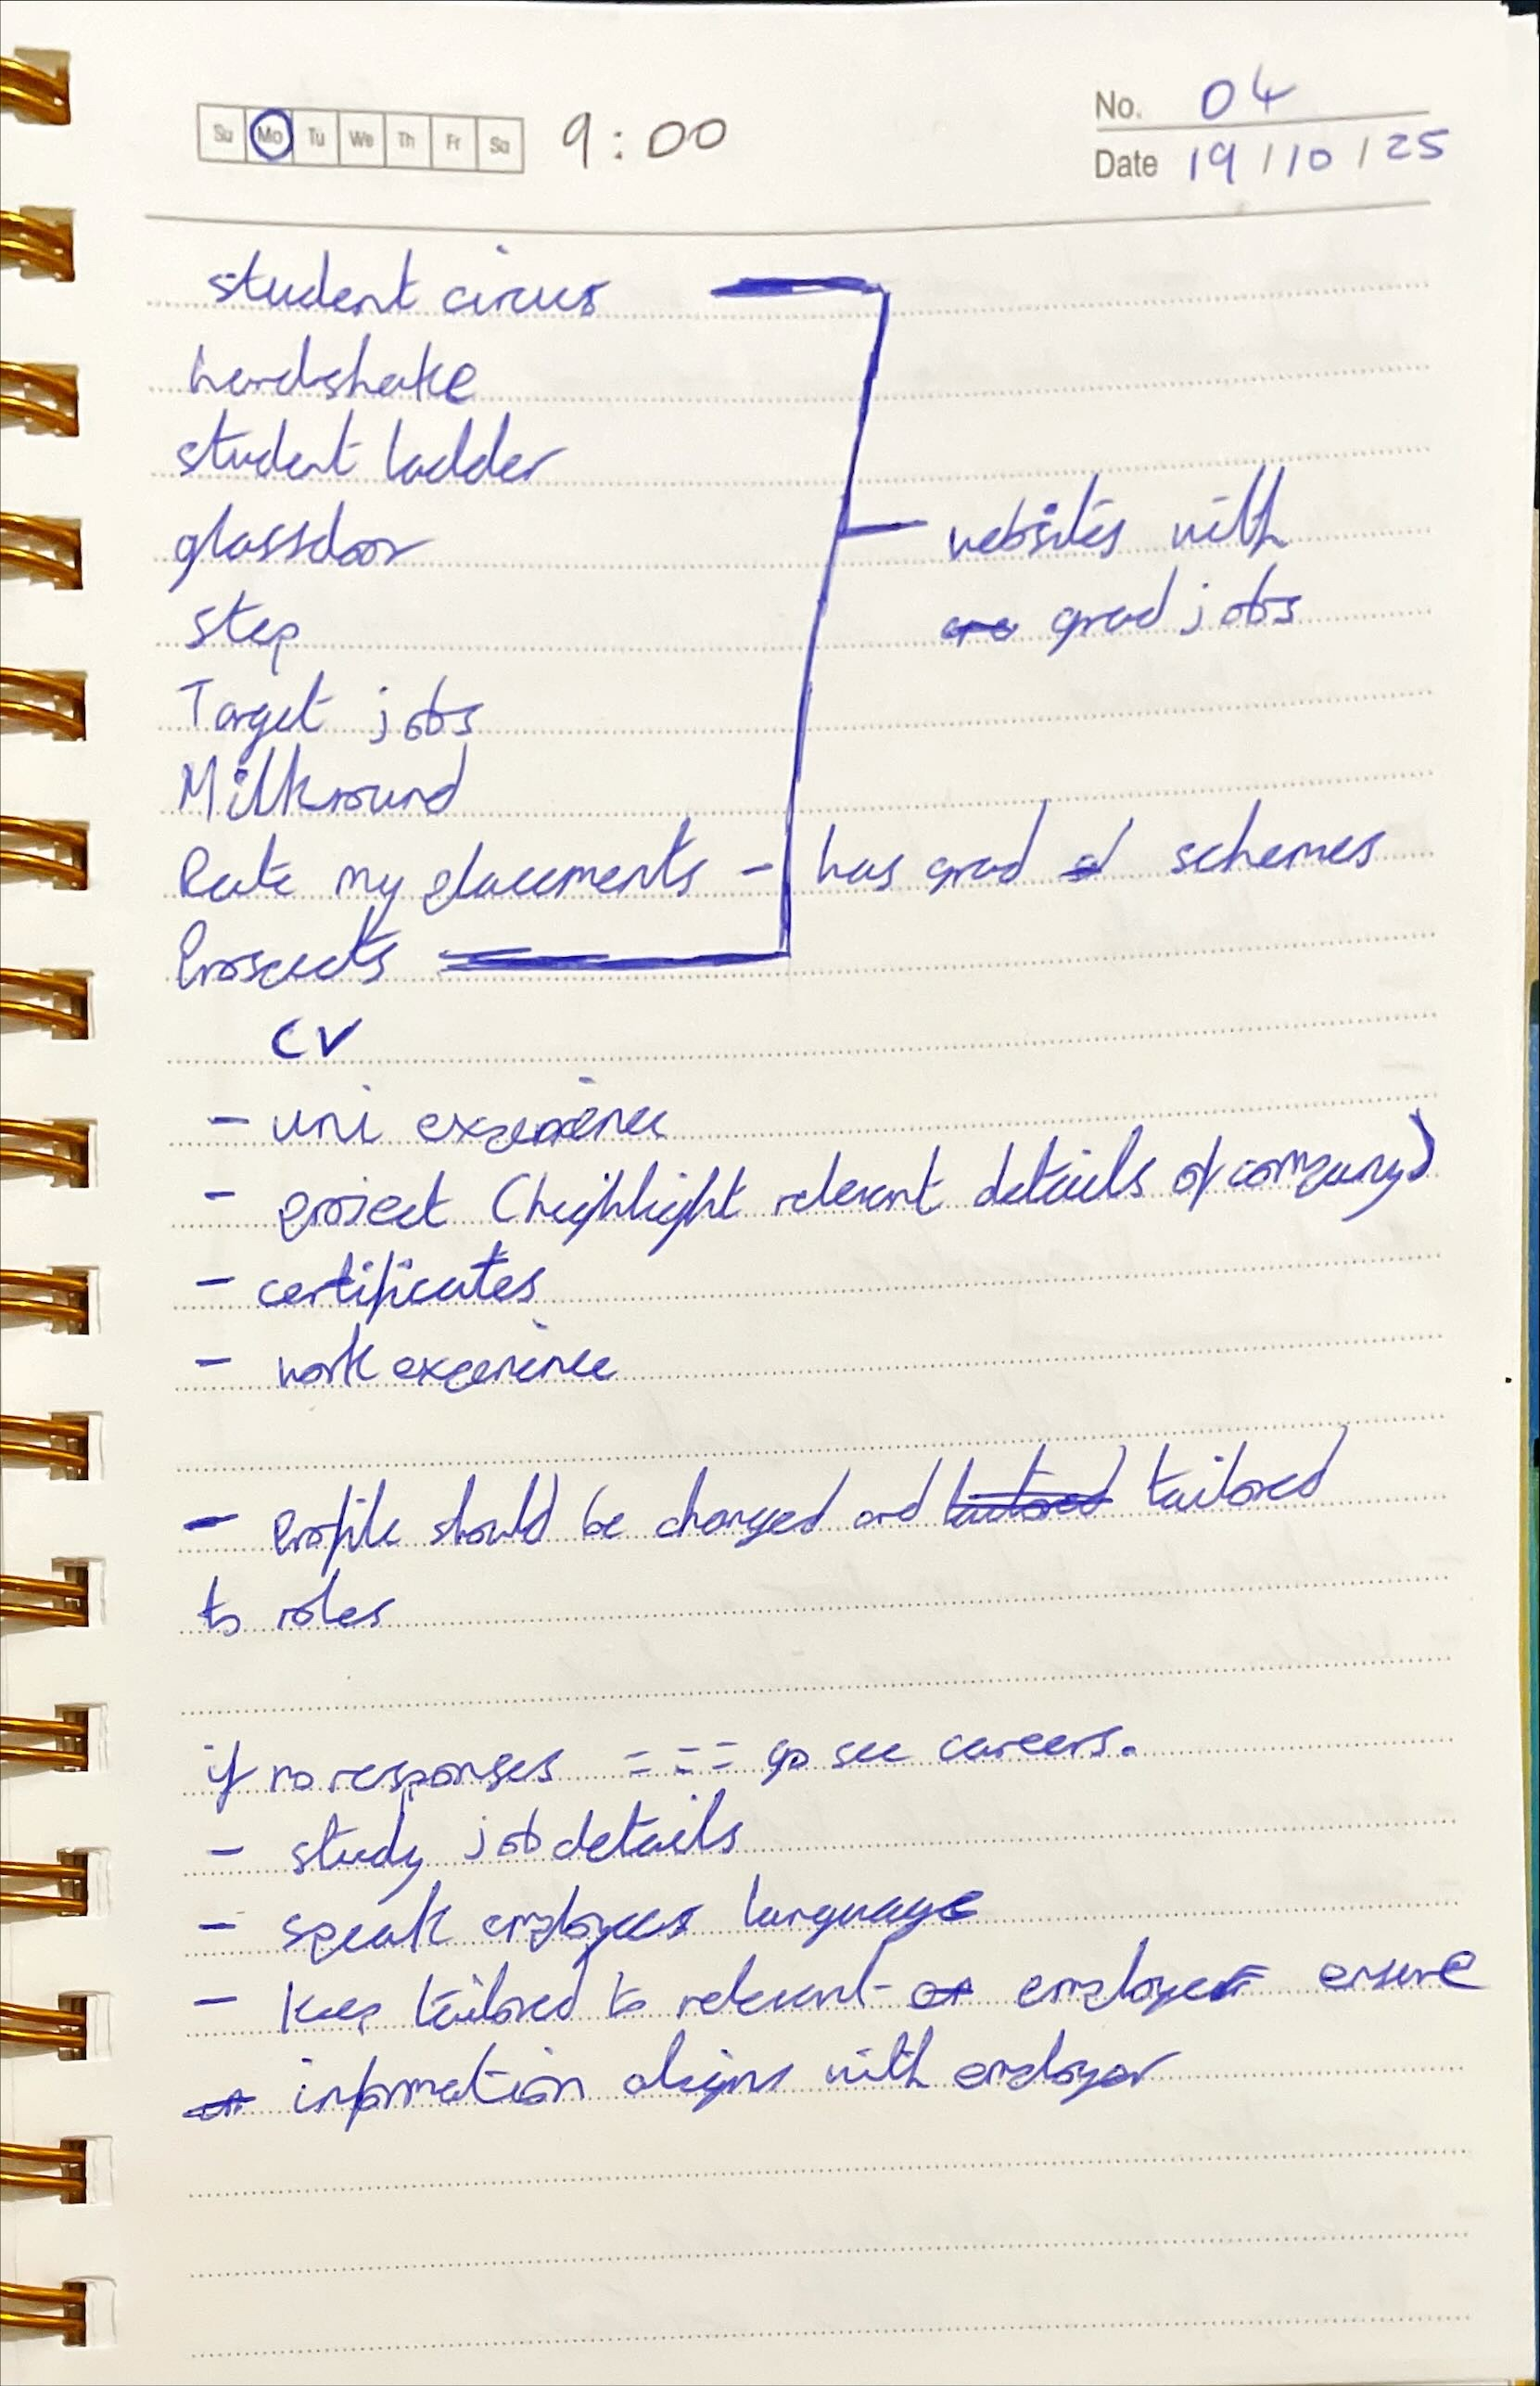 Su Mo Tu We Th Fr Sa 9:00
No. 04
Date 19/10/25
student circus
handshake
student ladder
glassdoor
websites with
step
are grad jobs
Target jobs
Milkround
Rate my placements - has grad schemes
Prospects
CV
- uni experience
- project (highlight relevant details of company)
- certificates
- work experience
- Profile should be changed and tailored
to roles
if no responses = = = go see careers.
- study job details
- speak employers language
- keep tailored to relevant employer ensure
information aligns with employer